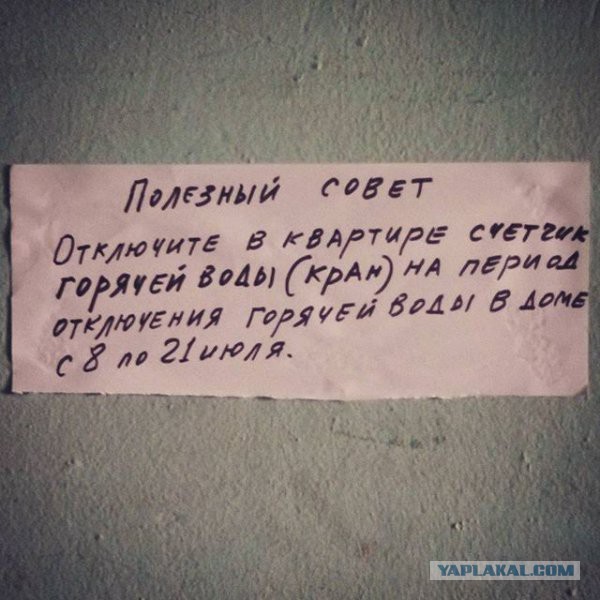 Полезный совет
Отключите в квартире счетчик
горячей воды (кран) на период
отключения горячей воды в доме
с 8 по 21 июля.
YAPLAKAL.COM